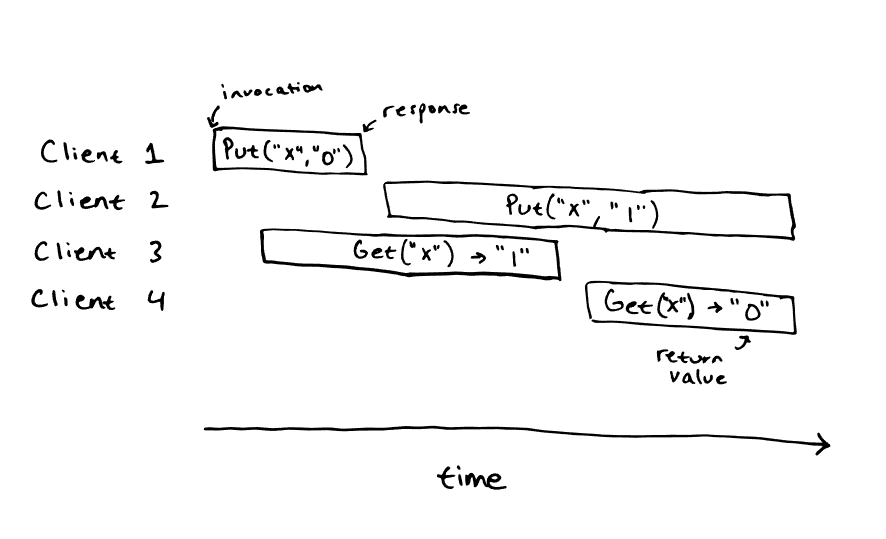 invocation
response
Client 1 Put("x","0")
Client 2 Put("x", "1")
Client 3 Get("x") → "1"
Client 4 Get("x") → "0"
return
value
time